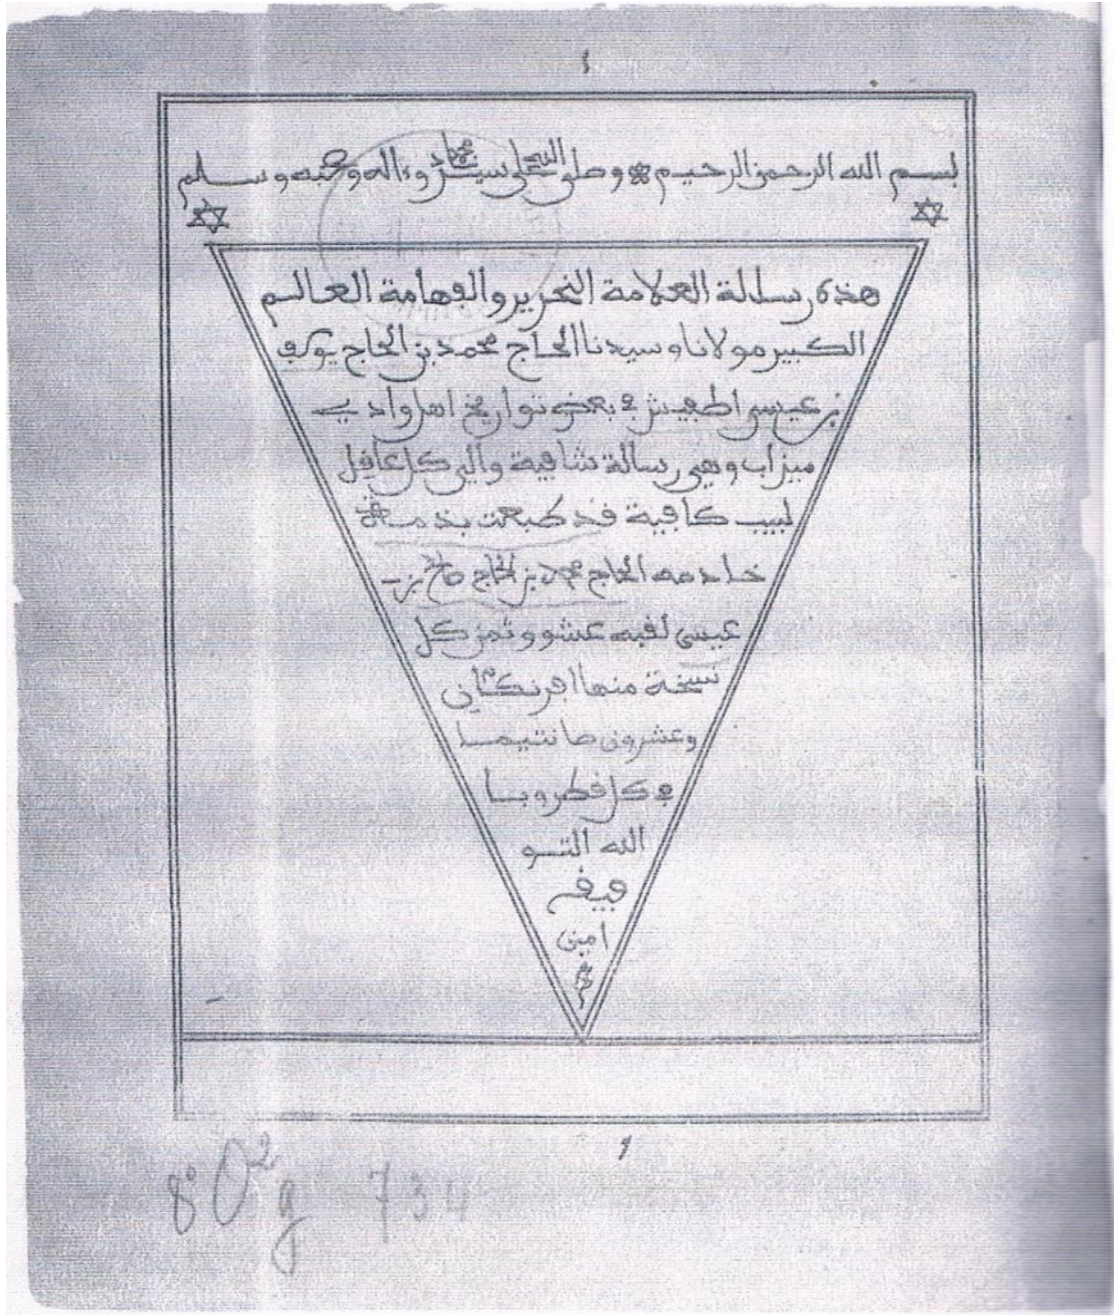 ١
بسم الله الرحمن الرحيم وصلى الله على سيدنا محمد وءاله وصحبه وسلم
هذه رسالة العلامة النحرير والفهامة العالم
الكبير مولانا وسيدنا الحاج محمد بن الحاج يوسف
بن عيسى اطفيش في بعض تواريخ اهل وادي
ميزاب وهي رسالة شافية والى كل عاقل
لبيب كافية قد طبعت بذمة
خادمه الحاج محمد بن الحاج صالح بن
عيسى لقبه عشو وثمن كل
نسخة منها افرنكان
وعشرون صانتيما
في كل قطر وبا
الله التو
فيق
امين
1
8° O²g 734